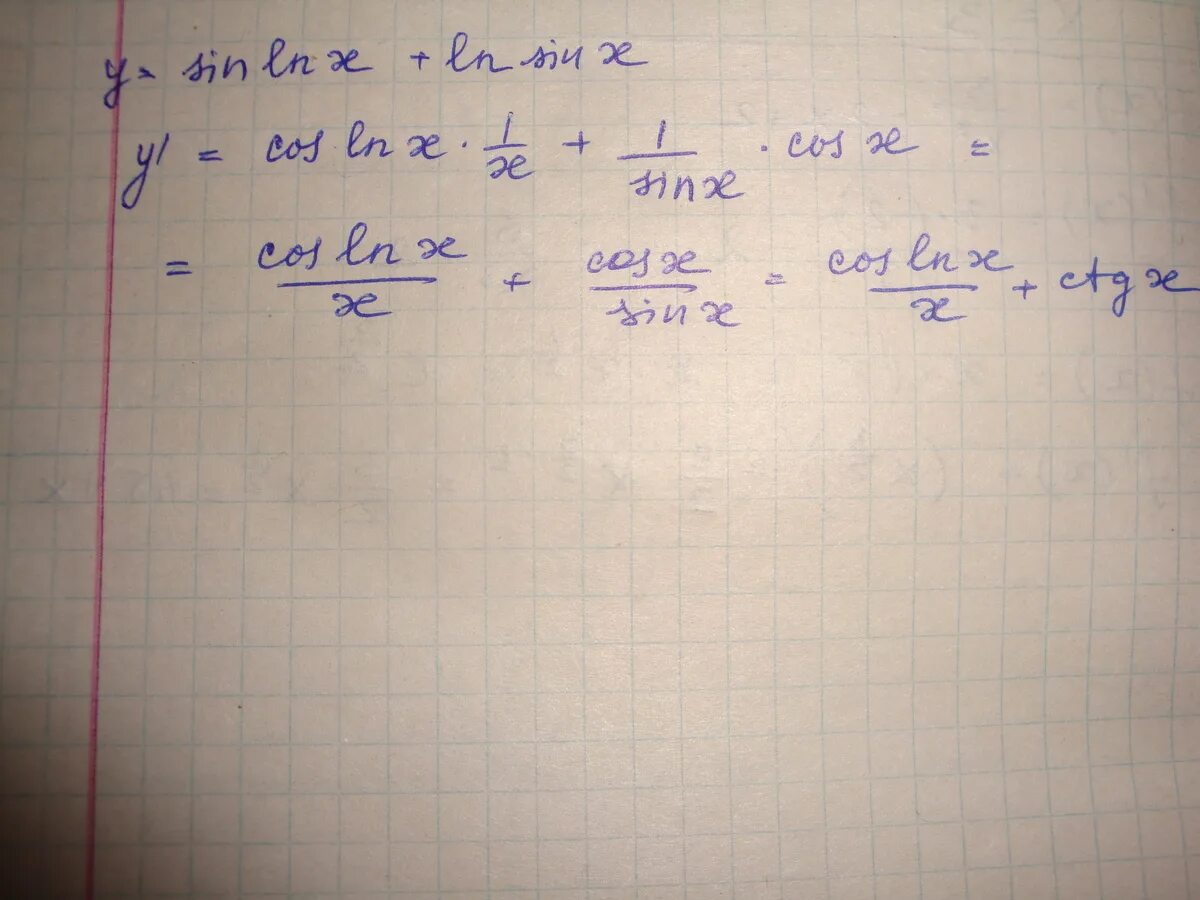 y = sin ln x + ln sin x
y' = cos ln x · 1/x + 1/sin x · cos x =
= cos ln x/x + cos x/sin x = cos ln x/x + ctg x